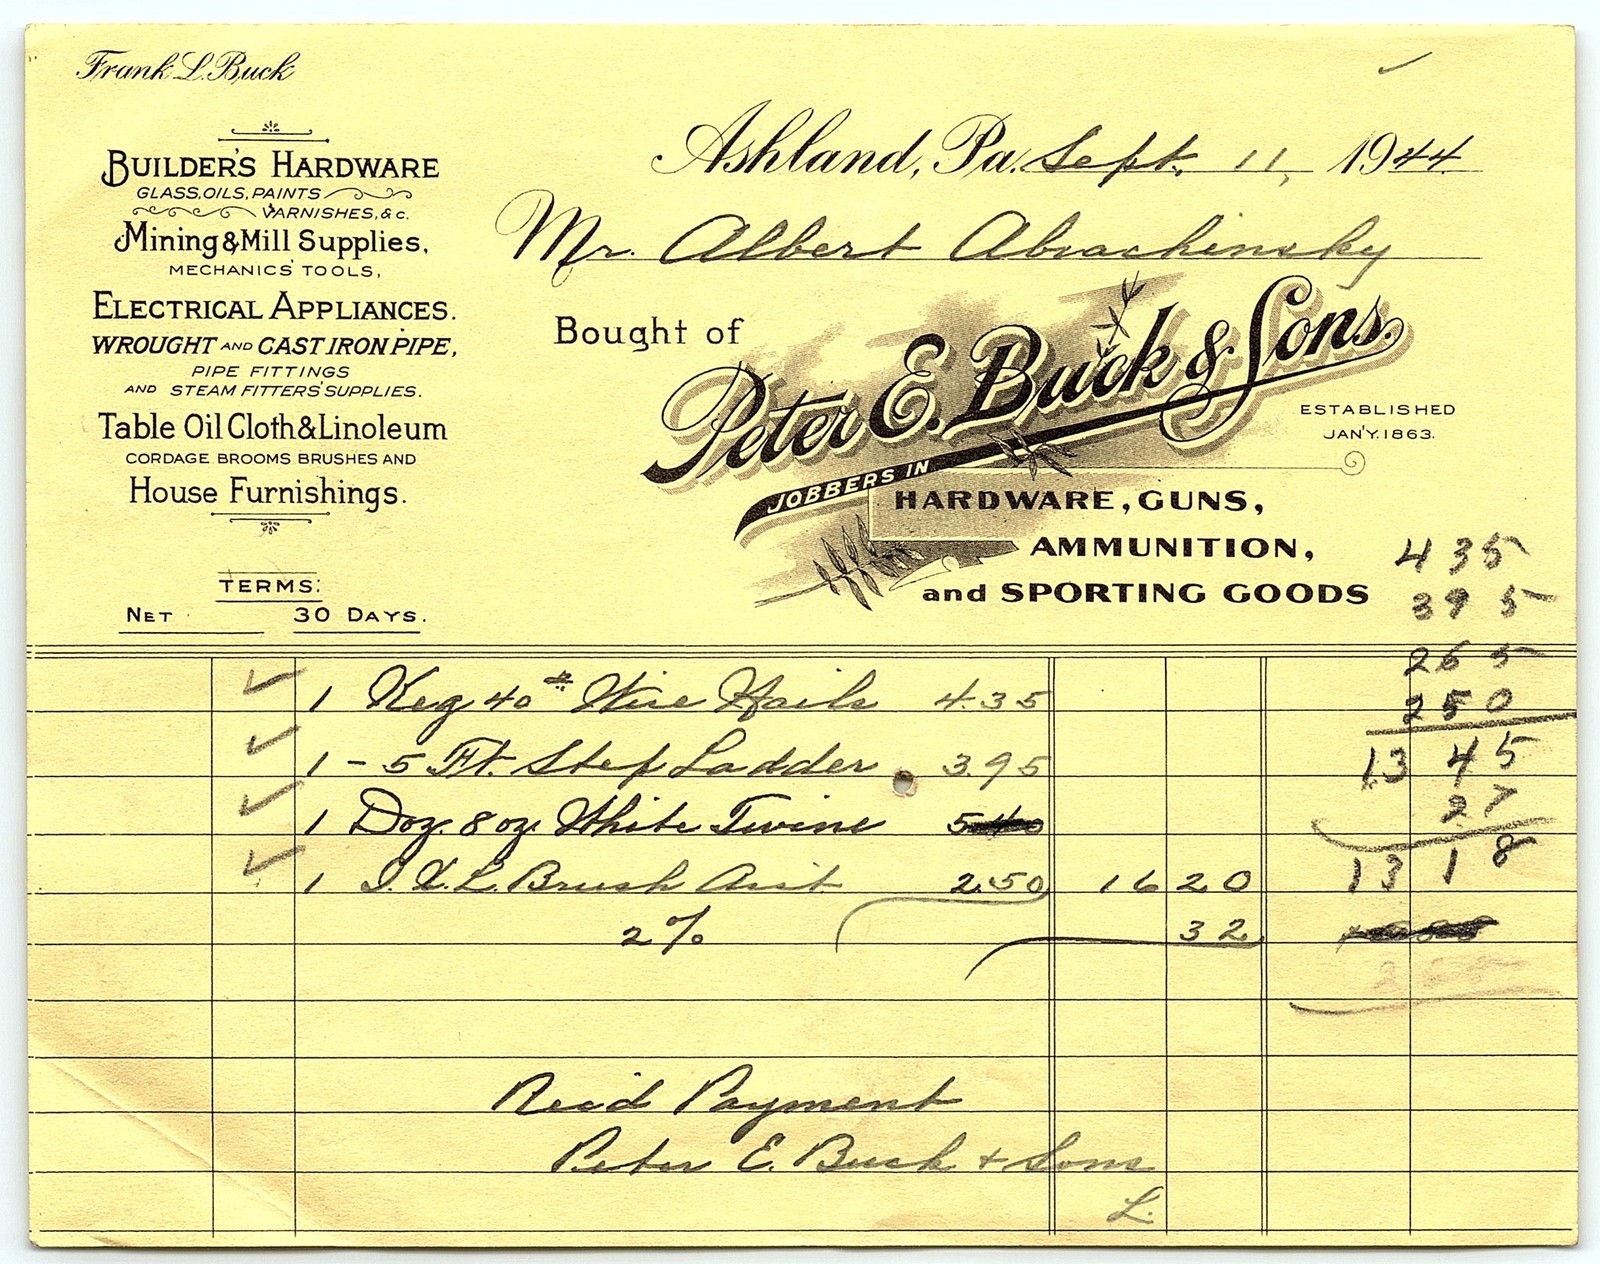 Frank L. Buck
BUILDER'S HARDWARE
GLASS, OILS, PAINTS
VARNISHES, & c.
Mining & Mill Supplies,
MECHANICS' TOOLS,
ELECTRICAL APPLIANCES.
WROUGHT AND CAST IRON PIPE,
PIPE FITTINGS
AND STEAM FITTERS' SUPPLIES.
Table Oil Cloth & Linoleum
CORDAGE BROOMS BRUSHES AND
House Furnishings.
TERMS:
NET 30 DAYS.
Ashland, Pa. Sept. 11, 1944.
Mr. Albert Abrachinsky
Bought of
Peter E. Buck & Sons.
ESTABLISHED
JAN'Y. 1863.
JOBBERS IN
HARDWARE, GUNS,
AMMUNITION,
and SPORTING GOODS
4 35
3 95
2 65
2 50
13 45
27
13 18
✓ 1 Keg 40# Wire Nails 4.35
✓ 1 - 5 Ft. Step Ladder 3.95
✓ 1 Doz. 8 oz. White Twine
✓ 1 I.X.L. Brush Asst 2.50 16 20
2% 32
Rec'd Payment
Peter E. Buck + Sons
L.